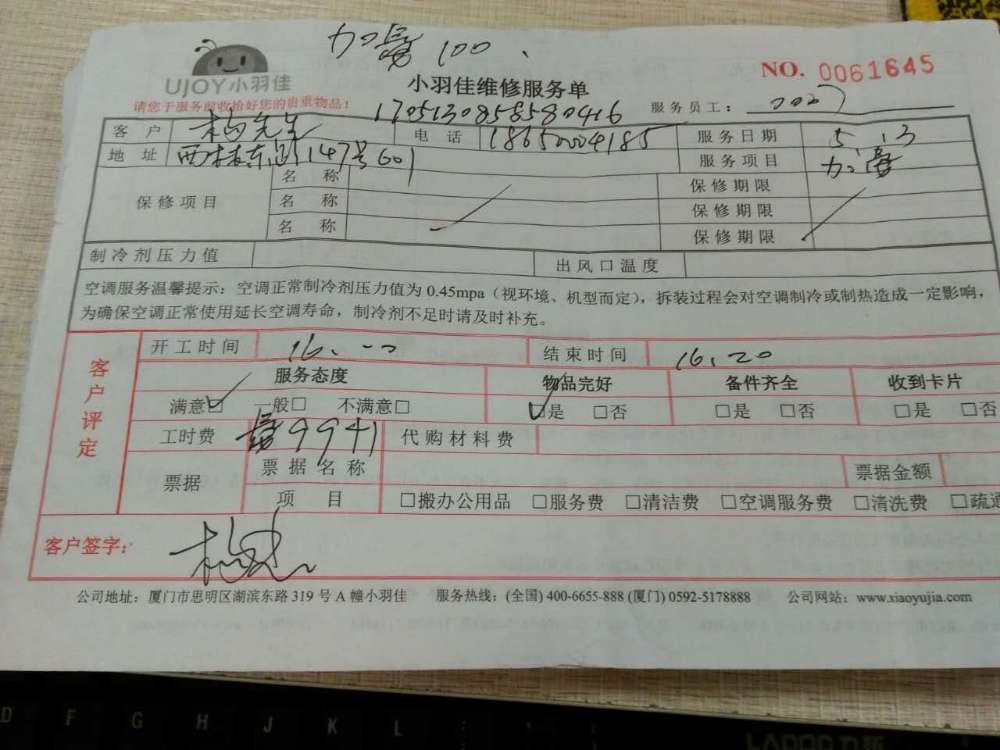 加氟 100.
UJOY小羽佳
小羽佳维修服务单
NO. 0061645
请您于服务前收拾好您的贵重物品!
1705130858580416
服务员工: 0027
客户 杨先生 电话 18650004185 服务日期 5.13
地址 西林东路147号601 服务项目 加氟
保修项目 名称 保修期限
名称 保修期限
名称 保修期限
制冷剂压力值 出风口温度
空调服务温馨提示:空调正常制冷剂压力值为0.45mpa(视环境、机型而定),拆装过程会对空调制冷或制热造成一定影响,
为确保空调正常使用延长空调寿命,制冷剂不足时请及时补充。
客户评定
开工时间 16.00 结束时间 16.20
服务态度 物品完好 备件齐全 收到卡片
满意☑ 一般□ 不满意□ ☑是 □否 □是 □否 □是 □否
工时费 9941 代购材料费
票据 票据名称 票据金额
项目 □搬办公用品 □服务费 □清洁费 □空调服务费 □清洗费 □疏通
客户签字:
公司地址:厦门市思明区湖滨东路319号A幢小羽佳 服务热线:(全国)400-6655-888(厦门)0592-5178888 公司网站:www.xiaoyujia.com
D F G H J K L